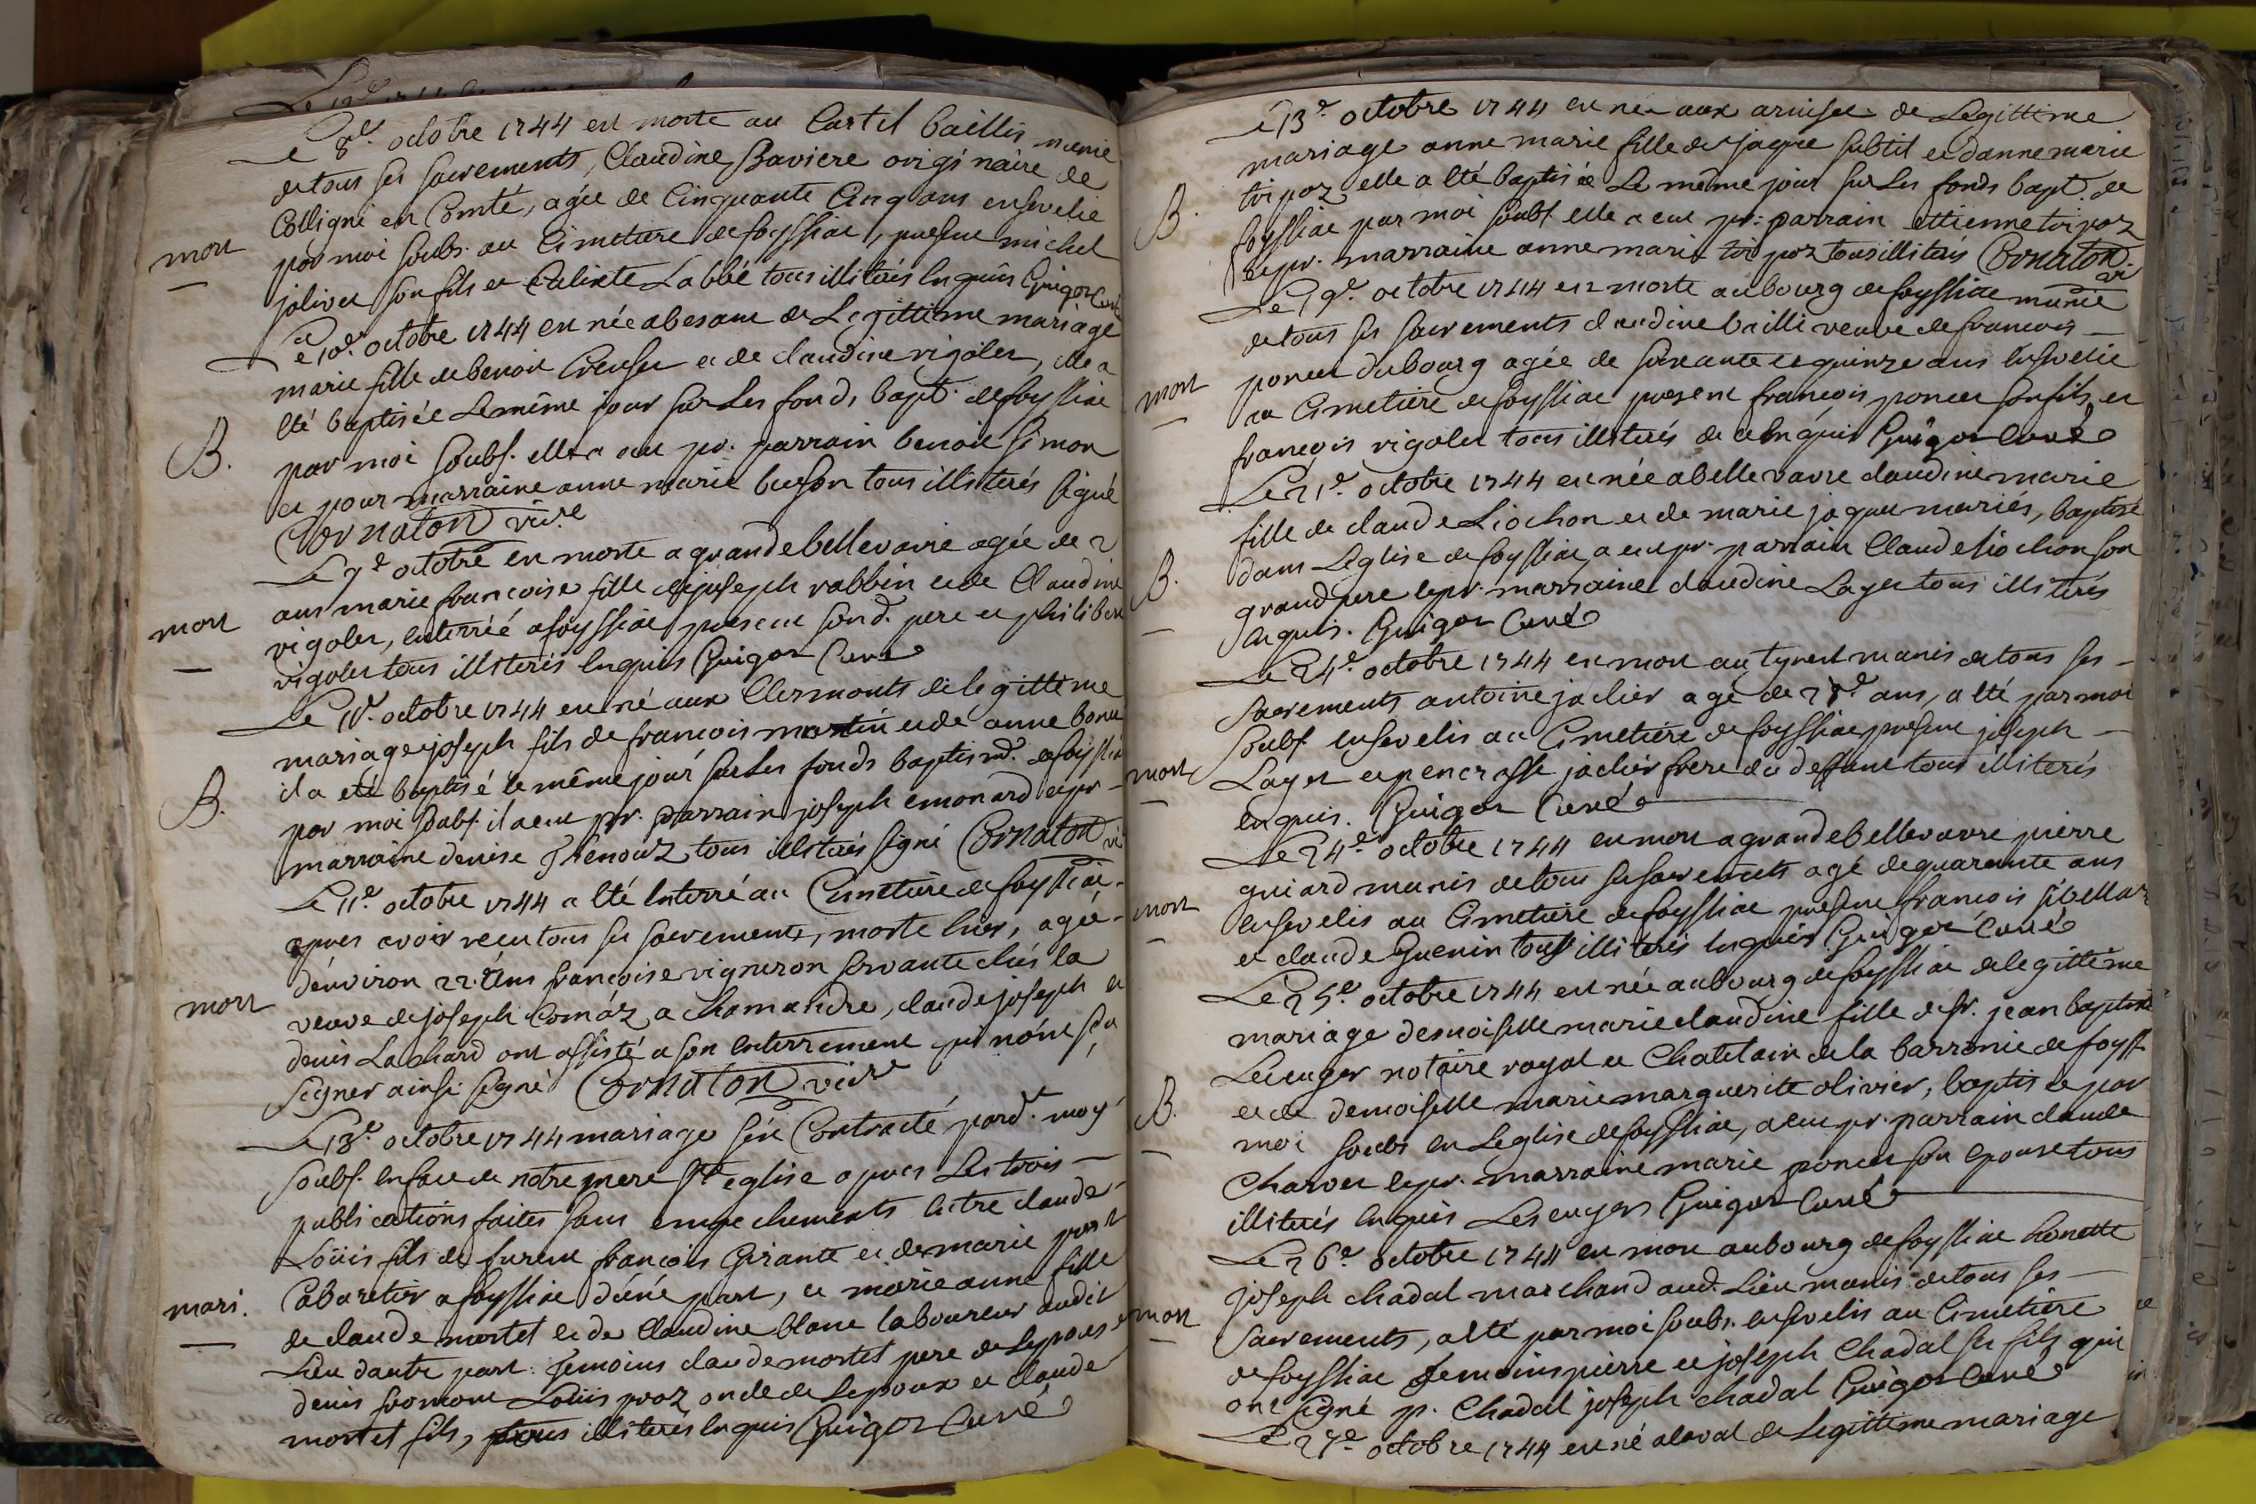 Le 8e. octobre 1744 est morte au Cartel baillis munie
de tous ses sacrements, Claudine Baviere origi naire de
Colligni en Comté, agée de Cinquante Cinq ans ensevelie
mort
par moi soubs. au Cimetiere de foyssiac, present michel
jolivet son fils et Calixte Labbé tous illiterés enquis Guigor Curé
Le 10e. octobre 1744 est née a besanc de Legittime mariage
marie fille de benoit Creuset et de claudine rigolet, elle a
été baptisée Le même jour sur Les fonds bapt. de foyssiac
B.
par moi soubs. elle a eu pr. parrain benoit simon
et pour marraine anne marie buson tous illiterés signé
Cornaton vic.re
Le 7e octobre est morte a grande bellevavre agée de 2
ans marie francoise fille de joseph rabbin et de Claudine
mort
rigolet, enterrée a foyssiac present son d. pere et philibert
rigolet tous illiterés enquis Guigor Curé
Le 11e. octobre 1744 est né aux Clermonts de legittime
mariage joseph fils de francois martin et de anne bonne
il a eté baptisé le même jour sur Les fonds baptism. de foyssia
B.
par moi soubs. il a eu pr. parrain joseph emonard et pr
marraine denise Thenouz tous illiterés signé Cornaton vi
Le 11e. octobre 1744 a été Enterré au Cimetiere de foyssiac
apres avoir recu tous ses sacrements, morte hier, agée
d'environ 22. Ans francoise vigneron servante chés la
mort
veuve de joseph Comáz a Chamandre, claude joseph et
denis Lachard ont assisté a son enterrement qui n'ont sçu
signer ainsi signé Cornaton vic.re
Le 13e. octobre 1744 mariage s'est Contracté pard.t moy
soubs. en face de notre mere Ste eglise apres Les trois
publications faites sans empechements Entre claude
Loüis fils de furent francois Girante et de marie
mari.
Cabaretier a foyssiac d'une part, et marie anne fille
de claude mortel et de Claudine blanc laboureur audit
Lieu dautre part. Temoins claude mortel pere de Lepouse
denis Loüis proz oncle de Lepoux et claude
mortel fils, tous illiterés enquis Guigor Curé
Le 13e. octobre 1744 est née aux de Legittime
mariage anne marie fille de jaque subtil et d'anne marie
B.
tripoz elle a été baptisée Le même jour sur Les fonds bapt. de
foyssiac par moi soubs. elle a eu pr. parrain ettienne tripoz
et pr. marraine anne marie tripoz tous illiterés Cornaton vi
Le 19e. octobre 1744 est morte au bourg de foyssiac munie
de tous ses sacrements claudine bailli veuve de francois
mort
poncet du bourg agée de soixante et quinze ans Ensevelie
au Cimetiere de foyssiac present francois poncet son fils, et
francois rigolet tous illiterés de ce Enquis Guigor Curé
Le 21e. octobre 1744 est née a bellevavre claudine marie
fille de claude Liochon et de marie jaque mariés, baptisé
B.
dans L'eglise de foyssiac, a eu pr. parrain Claude liochon son
grand pere et pr. marraine claudine Layer tous illiterés
enquis. Guigor Curé
Le 24e. octobre 1744 est mort au munis de tous ses
sacrements antoine jaclier agé de 28e. ans, a été par moi
soubs. ensevelis au Cimetiere de foyssiac present joseph
mort
Layer et jaclier frere du deffunt tous illiterés
enquis. Guigor Curé
Le 24e. octobre 1744 est mort a grande bellevavre pierre
guiard munis de tous ses sacrements agé de quarante ans
mort
ensevelis au Cimetiere de foyssiac present francois sibellas
et claude Guenin tous illiterés enquis Guigor Curé
Le 25e. octobre 1744 est née au bourg de foyssiac de legittime
mariage demoiselle marie claudine fille de sr. jean baptiste
Lescuyer notaire royal et Chatelain de la barronie de foyss.
B.
et de demoiselle marie marguerite olivier, baptisée par
moi soubs en Leglise de foyssiac, a eu pr. parrain claude
Charvet et pr. marraine marie poncet son epouse tous
illiterés enquis Lescuyer Guigor Curé
Le 26e. octobre 1744 est mort au bourg de foyssiac honette
joseph chadal marchand aud. Lieu munis de tous ses
mort
sacrements, a été par moi soubs. ensevelis au Cimetiere
de foyssiac Temoins pierre et joseph Chadal ses fils qui
ont signé p. Chadal joseph chadal Guigor Curé
Le 27e. octobre 1744 est né alaval de Legittime mariage